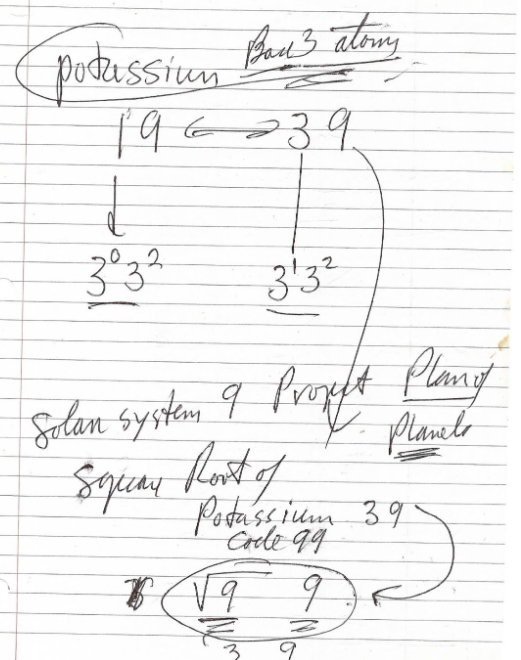 potassium Base 3 atoms
19 ↔ 39
3⁰3² 3¹3²
Solar system 9 Project Plan of
Planets
Square Root of
Potassium 39
Code 99
√9 9
3 9